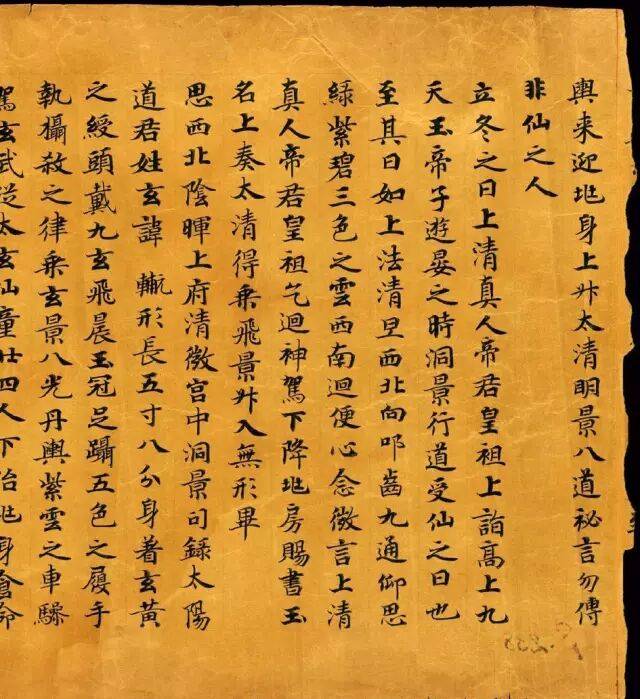 輿来迎𡉄身上升太清明景八道祕言勿傳
非仙之人
立冬之日上清真人帝君皇祖上詣高上九
天玉帝子遊晏之時洞景行道受仙之日也
至其日如上法清旦西北向叩齒九通仰思
緑紫碧三色之雲西南迴便心念微言上清
真人帝君皇祖乞迴神駕下降𡉄房賜書玉
名上奏太清得乗飛景升入無形畢
思西北陰暉上府清微宮中洞景司録太陽
道君姓玄諱𨋎形長五寸八分身著玄黄
之綬頭戴九玄飛晨玉冠足躡五色之履手
執攝殺之律乗玄景八光丹輿紫雲之車驂
駕玄武従太玄仙童廿四人下治𡉄身